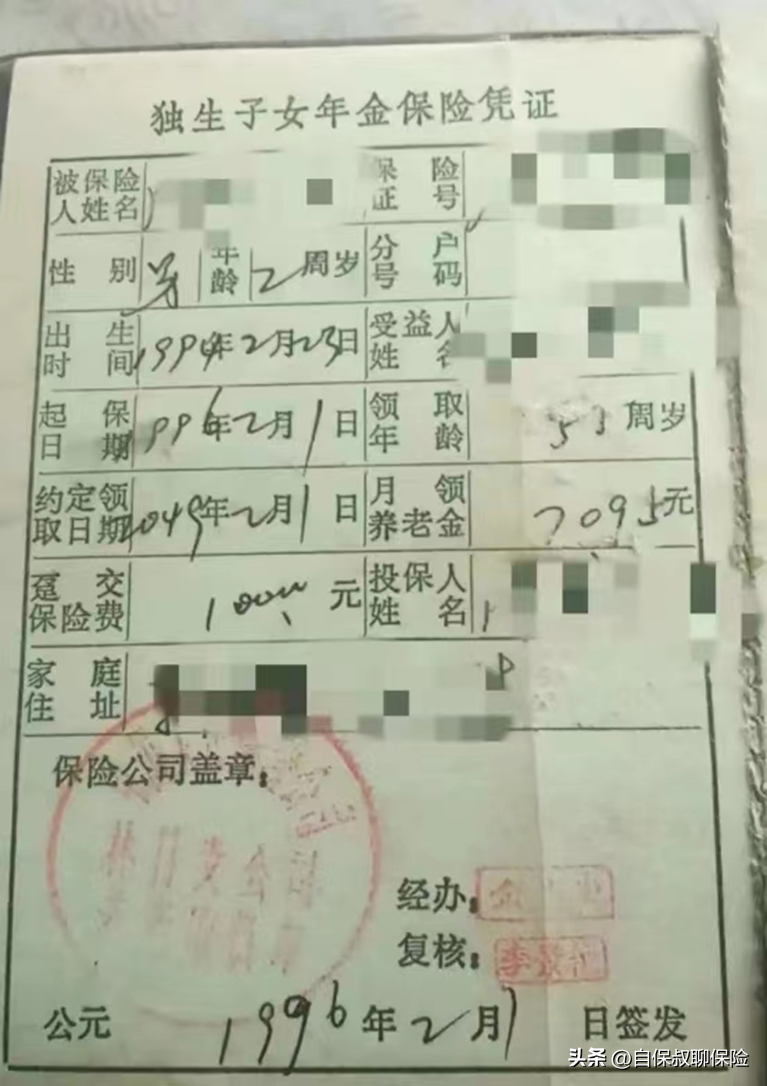 独生子女年金保险凭证
被保险人姓名 保险证号
性别 男 年龄 2周岁 分户号码
出生时间 1994年2月23日 受益人姓名
起保日期 1996年2月1日 领取年龄 53周岁
约定领取日期 2049年2月1日 月领养老金 7095元
趸交保险费 元 投保人姓名
家庭住址
保险公司盖章:
经办:
复核:
公元1996年2月1日签发
头条 @自保叔聊保险